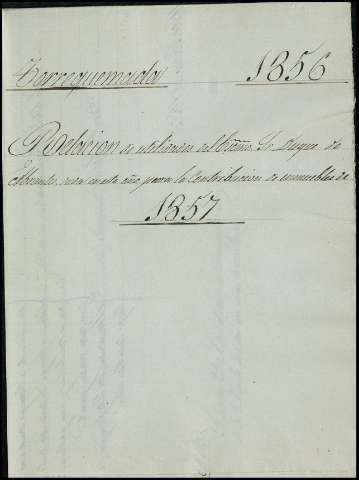 Torrequemada 1856
Relacion de utilidades del Escmo. Sr. Duque de
Abrantes, en este año para la Contribucion de inmuebles de
1857